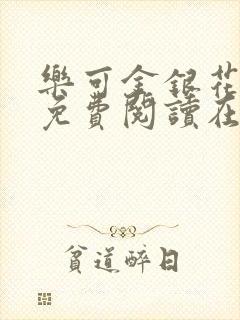 樂可金銀花
免費閱讀在
貧道醉日